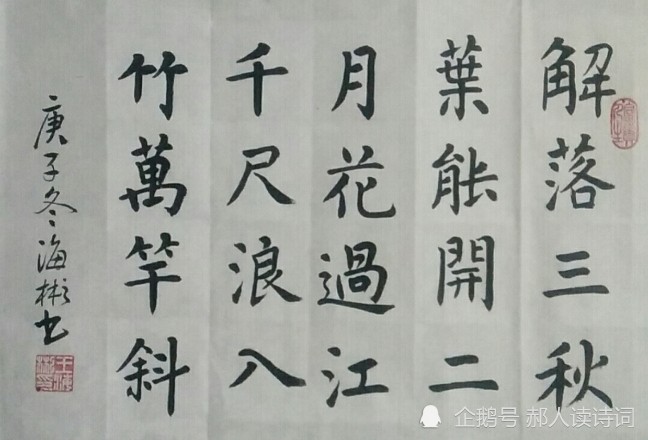 解落三秋
葉能開二
月花過江
千尺浪入
竹萬竿斜
庚子冬海彬书
企鹅号 郝人读诗词